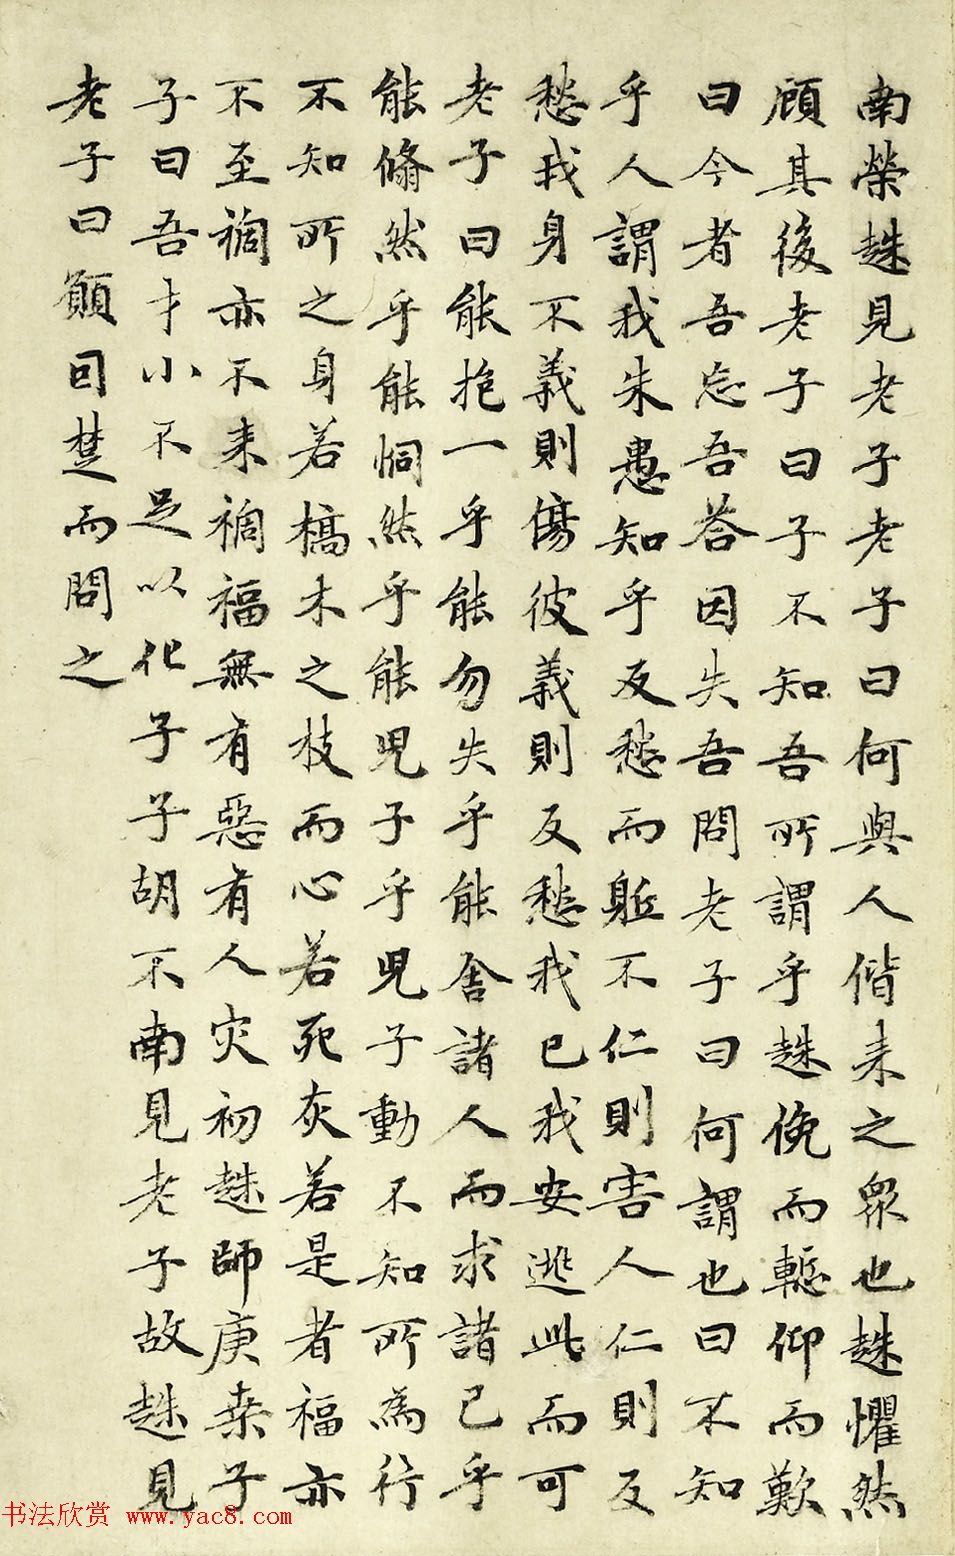 南榮趎見老子老子曰何與人偕来之眾也趎懼然
顧其後老子曰子不知吾所謂乎趎俛而慙仰而歎
曰今者吾忘吾荅因失吾問老子曰何謂也曰不知
乎人謂我朱愚知乎反愁而軀不仁則害人仁則反
愁我身不義則傷彼義則反愁我已我安逃此而可
老子曰能抱一乎能勿失乎能舍諸人而求諸己乎
能翛然乎能恫然乎能児子乎児子動不知所為行
不知所之身若槁木之枝而心若死灰若是者福亦
不至禍亦不来禍福無有惡有人灾初趎師庚桒子
子曰吾才小不足以化子子胡不南見老子故趎見
老子曰願囙楚而問之
书法欣赏 www.yac8.com